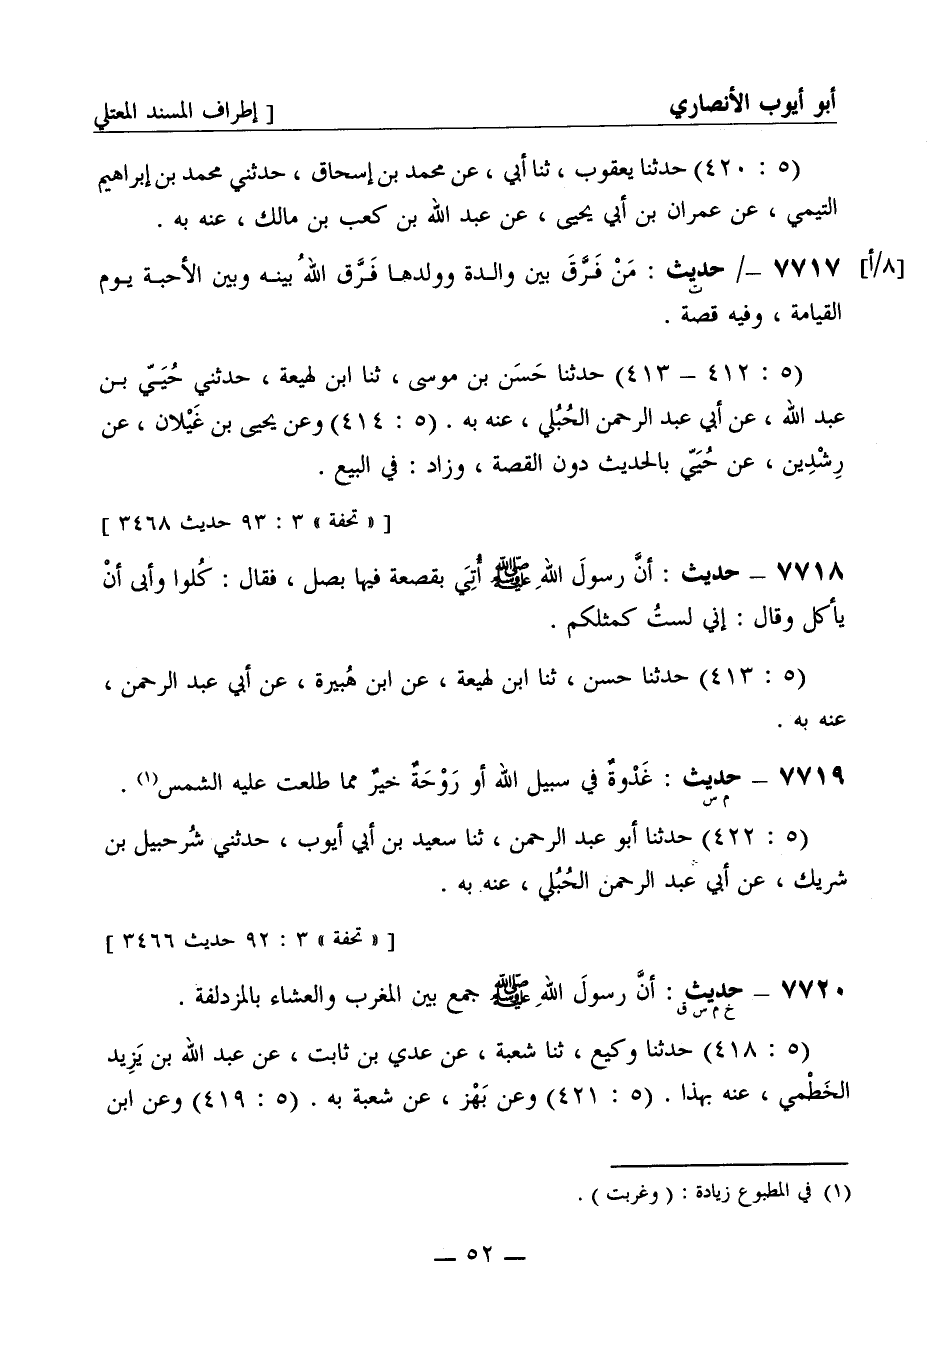 أبو أيوب الأنصاري
[ إطراف المسند المعتلي
(٥ : ٤٢٠) حدثنا يعقوب ، ثنا أبي ، عن محمد بن إسحاق ، حدثني محمد بن إبراهيم
التيمي ، عن عمران بن أبي يحيى ، عن عبد الله بن كعب بن مالك ، عنه به .
[٨/أ] ٧٧١٧ –/ حديث : مَنْ فَرَّقَ بين والدة وولدها فَرَّق اللهُ بينه وبين الأحبة يوم
ت
القيامة ، وفيه قصة .
(٥ : ٤١٢ – ٤١٣) حدثنا حَسَن بن موسى ، ثنا ابن لهيعة ، حدثني حُيَيّ بن
عبد الله ، عن أبي عبد الرحمن الحُبُلي ، عنه به . (٥ : ٤١٤) وعن يحيى بن غَيْلان ، عن
رِشْدِين ، عن حُيَيّ بالحديث دون القصة ، وزاد : في البيع .
[ « تحفة » ٣ : ٩٣ حديث ٣٤٦٨ ]
٧٧١٨ – حديث : أنَّ رسولَ اللهِ ﷺ أُتِيَ بقصعة فيها بصل ، فقال : كُلوا وأبى أنْ
يأكل وقال : إني لستُ كمثلكم .
(٥ : ٤١٣) حدثنا حسن ، ثنا ابن لهيعة ، عن ابن هُبيرة ، عن أبي عبد الرحمن ،
عنه به .
٧٧١٩ – حديث : غَدْوةٌ في سبيل الله أو رَوْحَةٌ خيرٌ مما طلعت عليه الشمس(١) .
م س
(٥ : ٤٢٢) حدثنا أبو عبد الرحمن ، ثنا سعيد بن أبي أيوب ، حدثني شُرحبيل بن
شريك ، عن أبي عبد الرحمن الحُبُلي ، عنه به .
[ « تحفة » ٣ : ٩٢ حديث ٣٤٦٦ ]
٧٧٢٠ – حديث : أنَّ رسولَ اللهِ ﷺ جمع بين المغرب والعشاء بالمزدلفة .
خ م س ق
(٥ : ٤١٨) حدثنا وكيع ، ثنا شعبة ، عن عدي بن ثابت ، عن عبد الله بن يَزِيد
الخَطْمي ، عنه بهذا . (٥ : ٤٢١) وعن بَهْز ، عن شعبة به . (٥ : ٤١٩) وعن ابن
(١) في المطبوع زيادة : ( وغربت ) .
– ٥٢ –